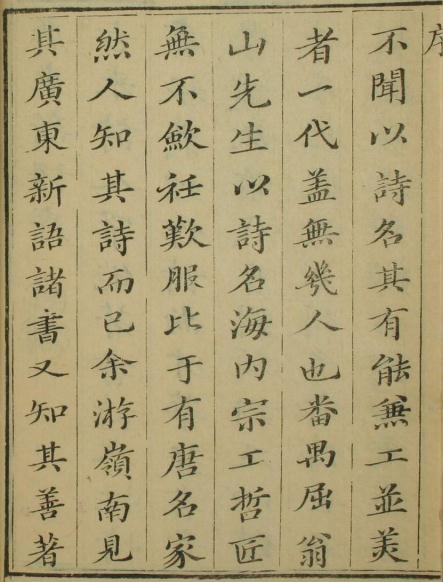 序
不聞以詩名其有能兼工並美
者一代盖無幾人也畨禺屈翁
山先生以詩名海内宗工哲匠
無不歛衽歎服比于有唐名家
然人知其詩而已余游嶺南見
其廣東新語諸書又知其善著